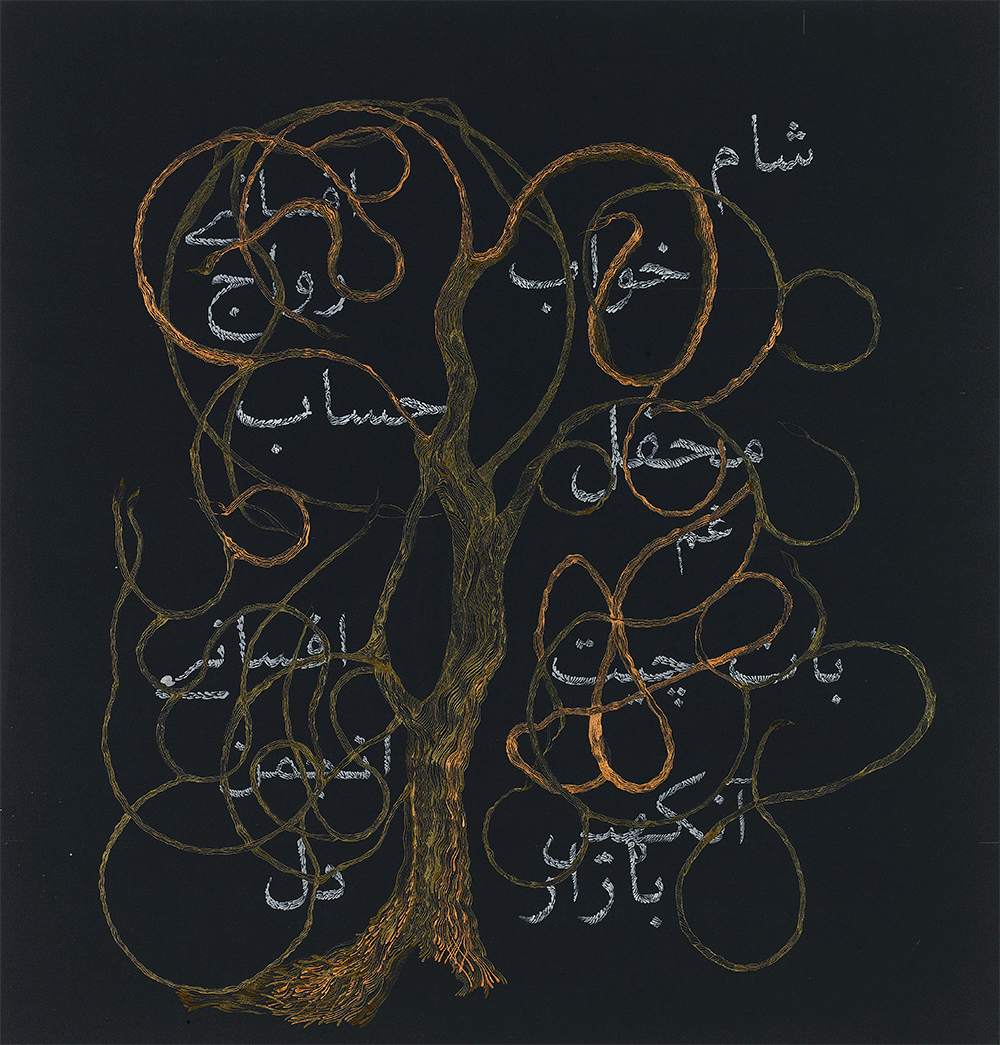 شام
افسانے
خواب
رواج
حساب
محفل
غم
بات چیت
انجمن
آنکھیں
دل
بازار